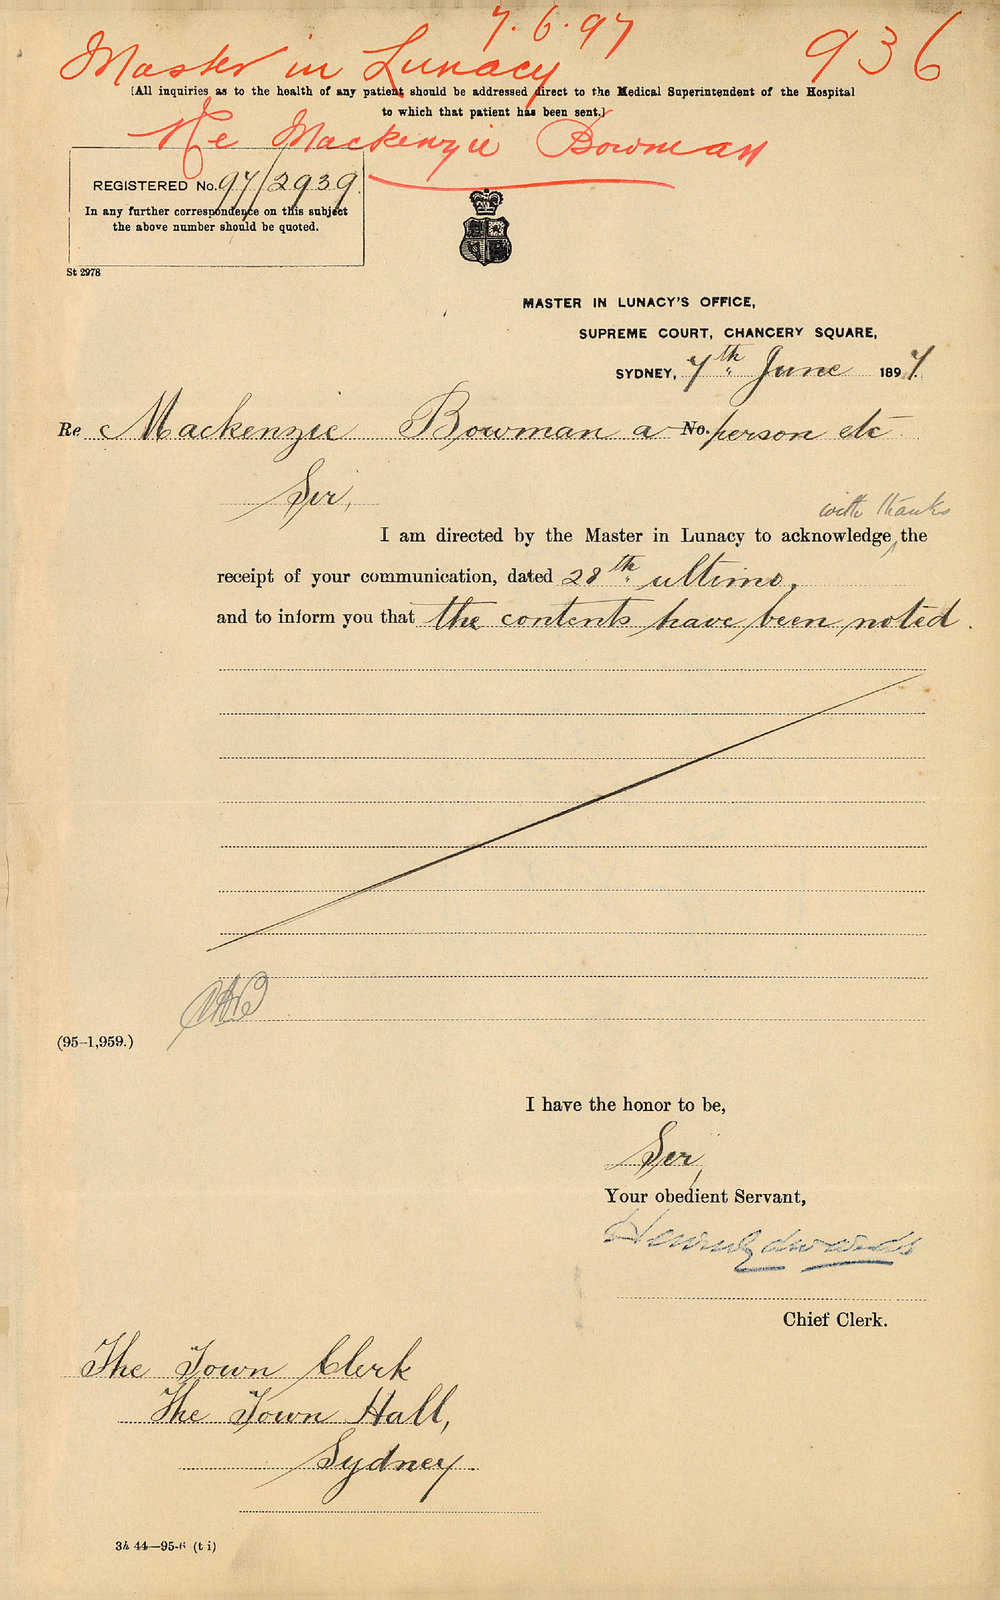 7.6.97
936
Master in Lunacy
[All inquiries as to the health of any patient should be addressed direct to the Medical Superintendent of the Hospital
to which that patient has been sent.]
Re Mackenzie Bowman
REGISTERED No. 97/2939
In any further correspondence on this subject
the above number should be quoted.
St 2978
MASTER IN LUNACY'S OFFICE,
SUPREME COURT, CHANCERY SQUARE,
SYDNEY, 7th June 1897.
Re Mackenzie Bowman a No. person etc
Sir,
with thanks
I am directed by the Master in Lunacy to acknowledge the
receipt of your communication, dated 28th ultimo,
and to inform you that the contents have been noted.
(95-1,959.)
I have the honor to be,
Sir,
Your obedient Servant,
Henry Edwards
Chief Clerk.
The Town Clerk
The Town Hall,
Sydney.
3h 44—95-6 (t i)